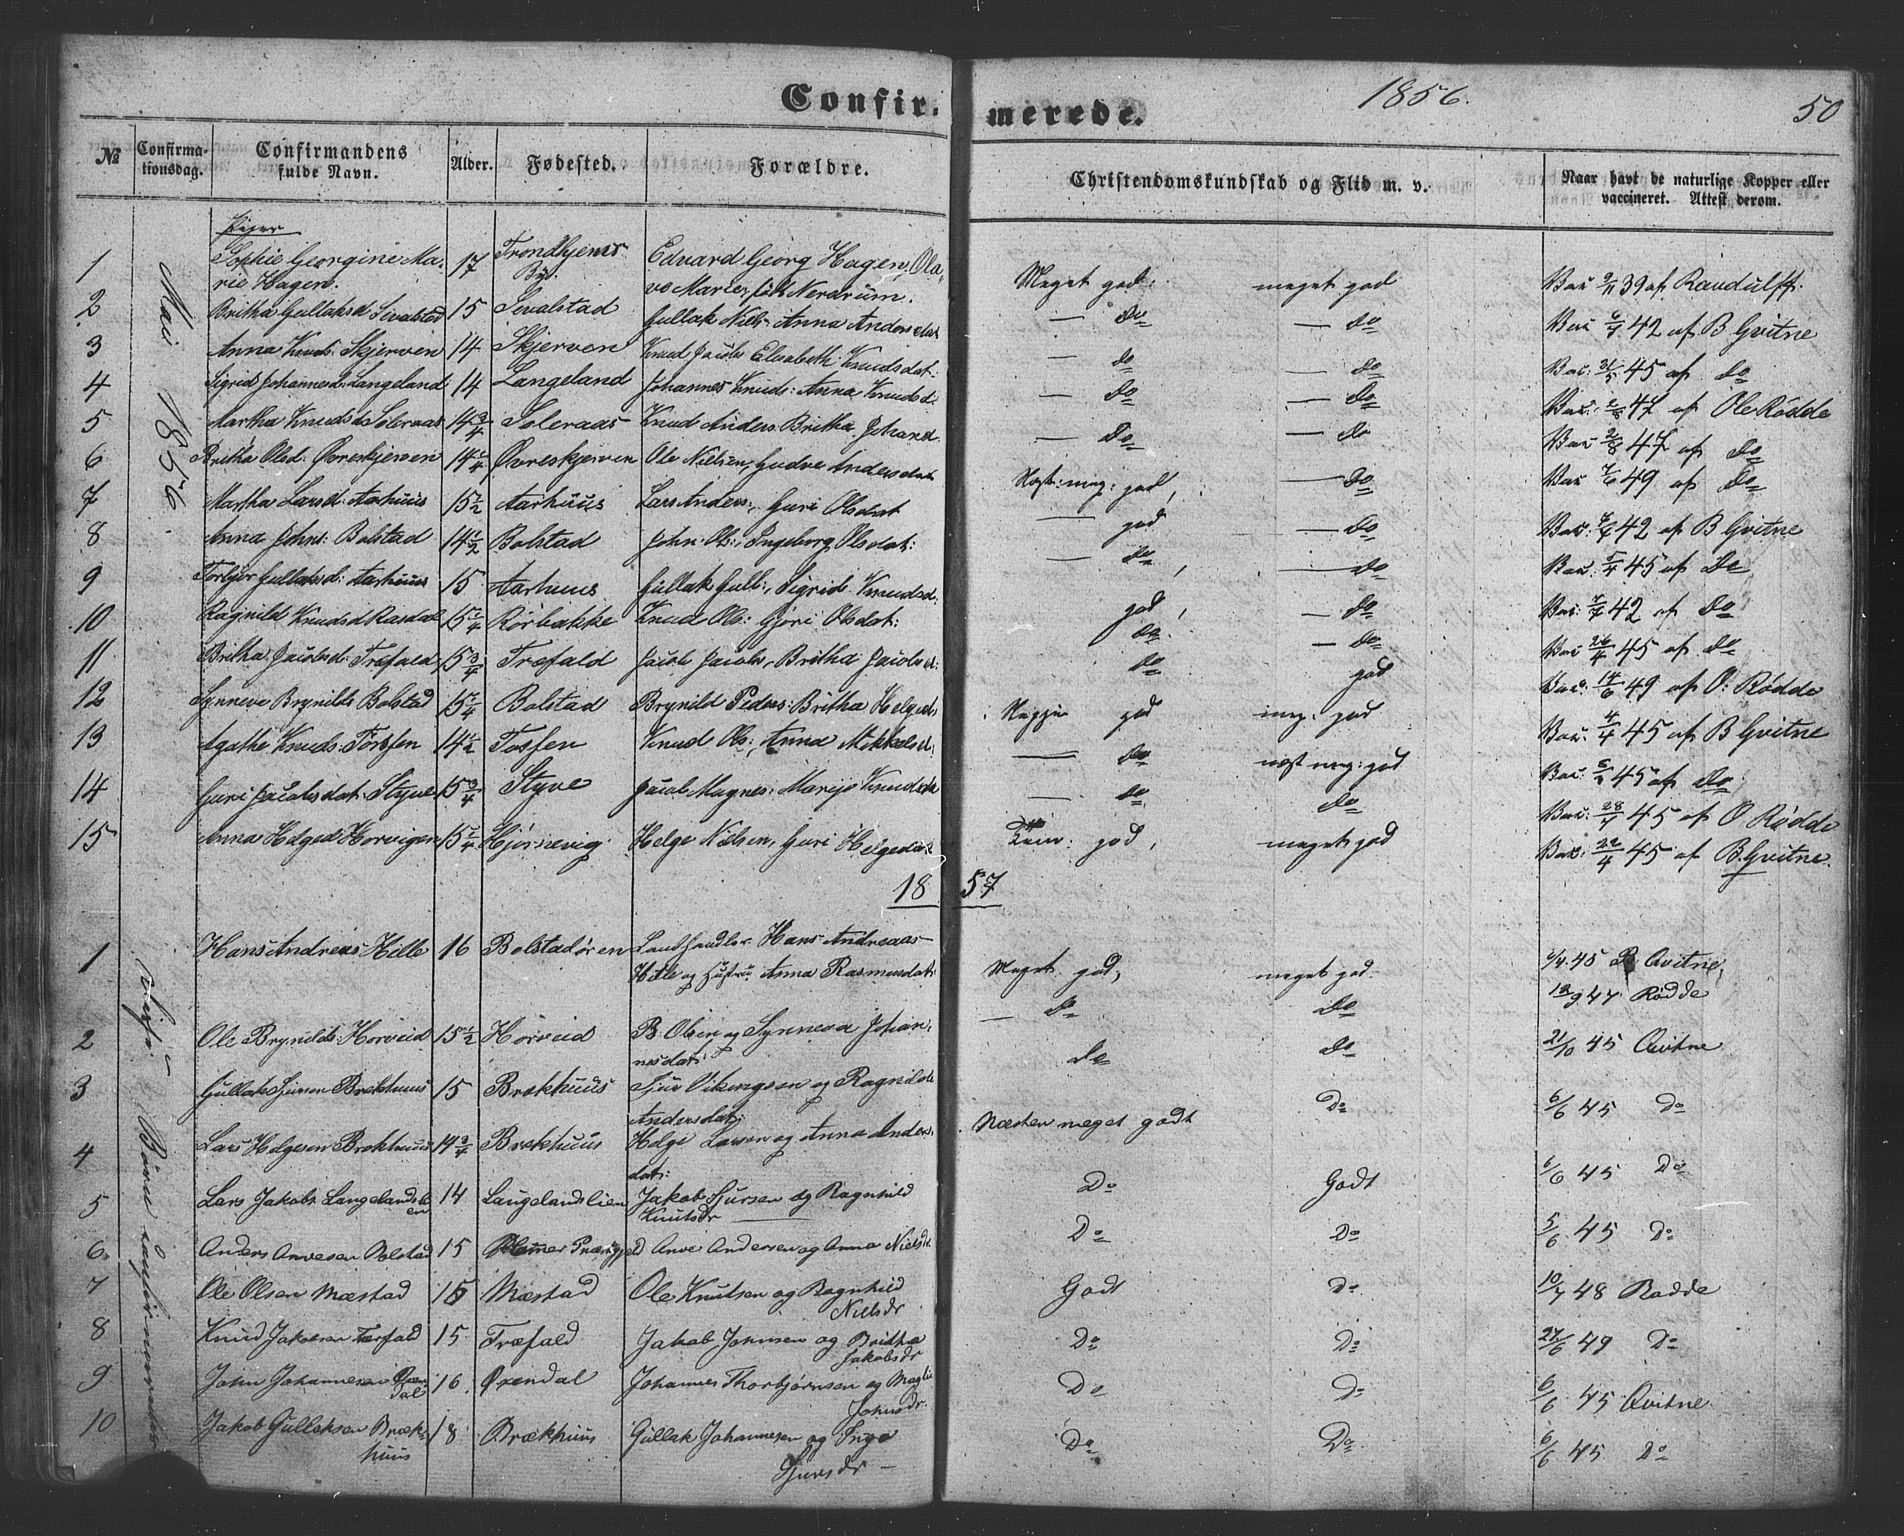 Confir. merede. 1856. 50
№ Confirma-tionsdag. Confirmandens fulde Navn. Alder. Fødested. Forældre. Christendomskundskab og Flid m. v. Naar havt de naturlige Kopper eller vaccineret. Attest derom.
Mai 1856.
Piger
1 Sophie Georgine Ma- 17 Trondhjems Edvard Georg Hagen, Ola-
rie Hagen. By. ve Marie, født Nerdrum. Meget god. meget god Vac 9/11 39 af Raudulff.
2 Britha Gullaksd Sevalstad 15 Sevalstad Gullak Niels. Anna Andersdat — Do — do Vac 42 af B Gvitne
3 Anna Knuds: Skjerven 14 Skjerven Knud Jacobs Elisabeth Knudsdat: — do — do Vac: 45 af do
4 Sigrid Johannesd: Langeland 14 Langeland Johannes Knuds: Anna Knudsd. — do — Do Vac: 47 af Ole Rødde
5 Martha Knudsd. Soleraas 14 3/4 Soleraas Knud Anders. Britha Johand. — Do — do Vac 47 af do
6 Britha Olsd: Øvreskjerven 14 1/4 Øvreskjerven Ole Nielsen, Gudve Andersdat Næst: meg: god, — Do Vac 49 af Do
7 Martha Larsd: Aarhuus 15 1/2 Aarhuus Lars Anders:, Guri Olsdat — god — Do Vac: 42 af B Gvitne
8 Anna Johns: Bolstad 14 1/2 Bolstad John Ols:, Ingeborg Olsdat: — do, — do Vac: 45 af Do
9 Torbjør Gullaksd: Aarhuus 15 Aarhuus Gullak Gull:, Sigrid Knudsd: god, — do Vac: 42 af Do
10 Ragnild Knudsd Rasdal 15 1/4 Rørbakke Knud Ols: Gjøri Olsdat: do. — do Vac 26/4 45 af do
11 Britha Jacobsd: Træfald 15 3/4 Træfald Jacob Jacobs, Britha Jacobsd: do god Vac. 14/6 49 af O: Rødde
12 Synneve Brynilds Bolstad 15 1/4 Bolstad Brynild Peders: Britha Helgesd. god meg: god Vac: 4/4 45 af B Gvitne
13 Agathe Knuds: Forsfen 14 1/2 Fosfen Knud Ols:, Anna Mikkelsd. — do næst meg: god Vac: 45 af do
14 Guri Jacobsdat: Styve 15 3/4 Styve Jacob Magnes: Marijo Knudsda — do do Vac: 28/4 45 af O Rødde
15 Anna Helged Horvigen 15 1/4 Hjørnevig Helge Nielsen, Guri Helgedat god, meget god Vac: 22/4 45 af B. Gvitne.
1857
1 Hans Andreas Hille 16 Bolstadøren Landhandler Hans Andreaas
Hille og Hustru Anna Rasmusdat: Meget god, meget god. 45 B Qvitne,
2 Ole Brynilds: Horveid 15 1/2 Horveid B. Olsen og Synneva Johan,
nesdat: — Do Do 13/9 47 Rødde
3 Gullak Sjursen Brækhuus 15 Brækhuus Sjur Vikingsen og Ragnilde
Andersdat; Do Do 21/10 45 Qvitne
4 Lars Helgesen Brækhuus 14 3/4 Brækhuus Helge Larsen og Anna Anders
dat: Næsten meget godt Do 6/6 45 Do
5 Lars Jakobs. Langelandsli 14 Langelandslien Jakob Sjursen og Ragnhild
en Knutsdr Do Godt 6/6 45 Do
6. Anders Anvesen Bolstad 15 Anve Andersen og Anna Nielsdr Do Do 5/6 45 Do
7 Ole Olsen Mæstad 15 Mæstad Ole Knutsen og Ragnhild
Nielsdr Godt Do 10/7 48 Rødde
8 Knud Jakobsen Træfald 15 Træfald Jakob Johnsen og Britha
Jakobsdr Do Do 27/6 49 Do
9 John Johannesen Øxen 16. Øxendal Johannes Thorbjørnsen og Magli
dal Johnsdr. Do Do 6/6 45 Qvitne
10 Jakob Gullaksen Bræk 18 Brækhuus Gullak Johannesen og Inga
huus Sjursdr — Do Do 6/6 45 Do